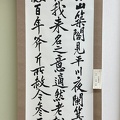 山築閣見平川夜闌箕
我来名之意適然老
百年斧斤所赦今参